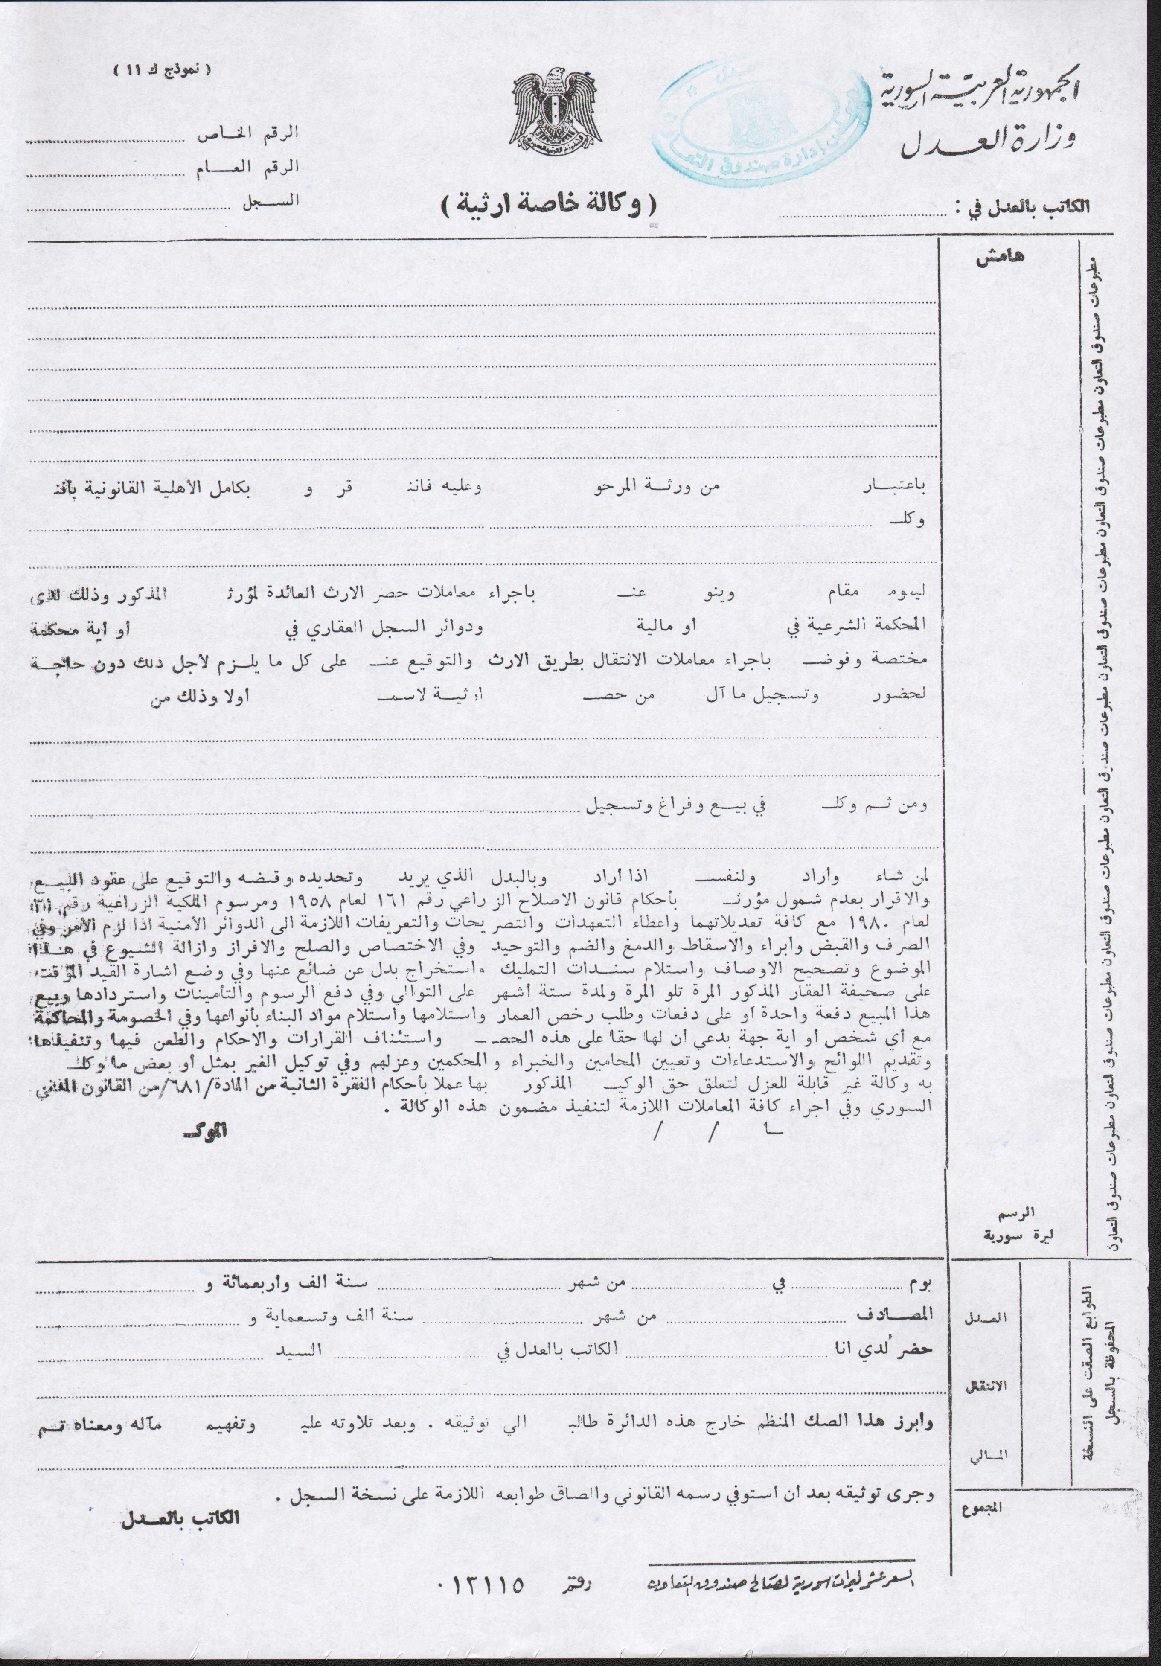 الجمهورية العربية السورية
وزارة العدل
الكاتب بالعدل في :
( نموذج ك ١١ )
الرقم الخاص
الرقم العام
السجل
( وكالة خاصة ارثية )
هامش
باعتبار من ورثة المرحو وعليه فاننـ قر و بكامل الأهلية القانونية بأنـ
وكلـ
ليقوم مقام وينو عنـ باجراء معاملات حصر الارث العائدة لمؤرثـ المذكور وذلك لدى
المحكمة الشرعية في او مالية ودوائر السجل العقاري في أو أية محكمة
مختصة وفوضـ باجراء معاملات الانتقال بطريق الارث والتوقيع عنـ على كل ما يلزم لأجل ذلك دون حاجة
لحضور وتسجيل ما آل من حصـ ارثية لاسمـ أولا وذلك من
ومن ثم وكلـ في بيع وفراغ وتسجيل
لمن شاء وأراد ولنفسـ اذا أراد وبالبدل الذي يريد وتحديده وقبضه والتوقيع على عقود البيع
والاقرار بعدم شمول مؤرثـ بأحكام قانون الاصلاح الزراعي رقم ١٦١ لعام ١٩٥٨ ومرسوم الملكية الزراعية رقم
لعام ١٩٨٠ مع كافة تعديلاتهما واعطاء التعهدات والتصريحات والتعريفات اللازمة الى الدوائر الأمنية اذا لزم الأمر وفي
الصرف والقبض وابراء والاسقاط والدمغ والضم والتوحيد وفي الاختصاص والصلح والافراز وازالة الشيوع في هذا
الموضوع وتصحيح الاوصاف واستلام سندات التمليك واستخراج بدل عن ضائع عنها وفي وضع اشارة القيد المؤقت
على صحيفة العقار المذكور المرة تلو المرة ولمدة ستة أشهر على التوالي وفي دفع الرسوم والتأمينات واستردادها وبيع
هذا المبيع دفعة واحدة او على دفعات وطلب رخص العمار واستلامها واستلام مواد البناء بأنواعها وفي الخصومة والمحاكمة
مع أي شخص او اية جهة يدعي ان لها حقا على هذه الحصـ واستئناف القرارات والاحكام والطعن فيها وتنفيذها
وتقديم اللوائح والاستدعاءات وتعيين المحامين والخبراء والمحكمين وعزلهم وفي توكيل الغير بمثل أو بعض ما وكلـ
به وكالة غير قابلة للعزل لتعلق حق الوكيـ المذكور بها عملا بأحكام الفقرة الثانية من المادة /٦٨١/ من القانون المدني
السوري وفي اجراء كافة المعاملات اللازمة لتنفيذ مضمون هذه الوكالة .
/ / الموكـ
الرسم
ليرة سورية
يوم في من شهر سنة الف واربعمائة و
المصادف من شهر سنة الف وتسعماية و
حضر لدي انا الكاتب بالعدل في السيد
وابرز هذا الصك المنظم خارج هذه الدائرة طالبـ الي توثيقه . وبعد تلاوته عليـ وتفهيمـ مآله ومعناه تم
وجرى توثيقه بعد ان استوفي رسمه القانوني والصاق طوابعه اللازمة على نسخة السجل .
الكاتب بالعدل
العدل
الانتقال
المالي
المجموع
الطوابع الصقت على النسخة
المحفوظة بالسجل
السعر عشر ليرات سورية لصالح صندوق التعاون رقم ٠١٣١١٥
مطبوعات صندوق التعاون مطبوعات صندوق التعاون مطبوعات صندوق التعاون مطبوعات صندوق التعاون مطبوعات صندوق التعاون مطبوعات صندوق التعاون